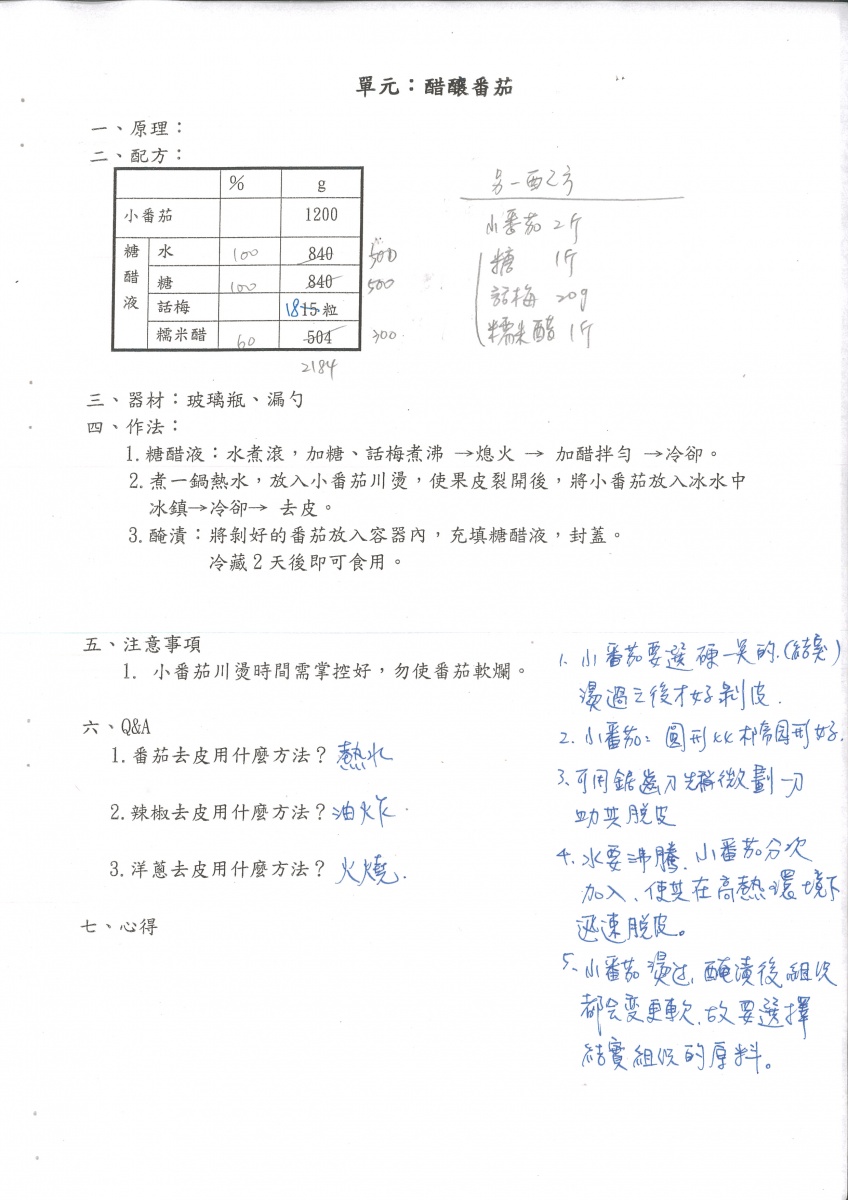 單元：醋釀番茄
一、原理：
二、配方：
% g
小番茄 1200
糖醋液
水 100 840 500
糖 100 840 500
話梅 18 15 粒
糯米醋 60 504 300
2184
另一配方
小番茄 2斤
糖 1斤
話梅 20g
糯米醋 1斤
三、器材：玻璃瓶、漏勺
四、作法：
1.糖醋液：水煮滾，加糖、話梅煮沸 →熄火 → 加醋拌勻 →冷卻。
2.煮一鍋熱水，放入小番茄川燙，使果皮裂開後，將小番茄放入冰水中
冰鎮→冷卻→ 去皮。
3.醃漬：將剝好的番茄放入容器內，充填糖醋液，封蓋。
冷藏2天後即可食用。
五、注意事項
1. 小番茄川燙時間需掌控好，勿使番茄軟爛。
六、Q&A
1.番茄去皮用什麼方法？熱水
2.辣椒去皮用什麼方法？油炸.
3.洋蔥去皮用什麼方法？火燒.
七、心得
1. 小番茄要選硬一點的.(結實)
燙過之後才好剝皮.
2. 小番茄：圓形比橢圓形好.
3.可用鋸齒刀先稍微劃一刀
助其脫皮
4.水要沸騰.小番茄分次
加入、使其在高熱環境下
迅速脫皮。
5、小番茄燙过,醃漬後組织
都会变更軟,故要選擇
結實組织的原料。